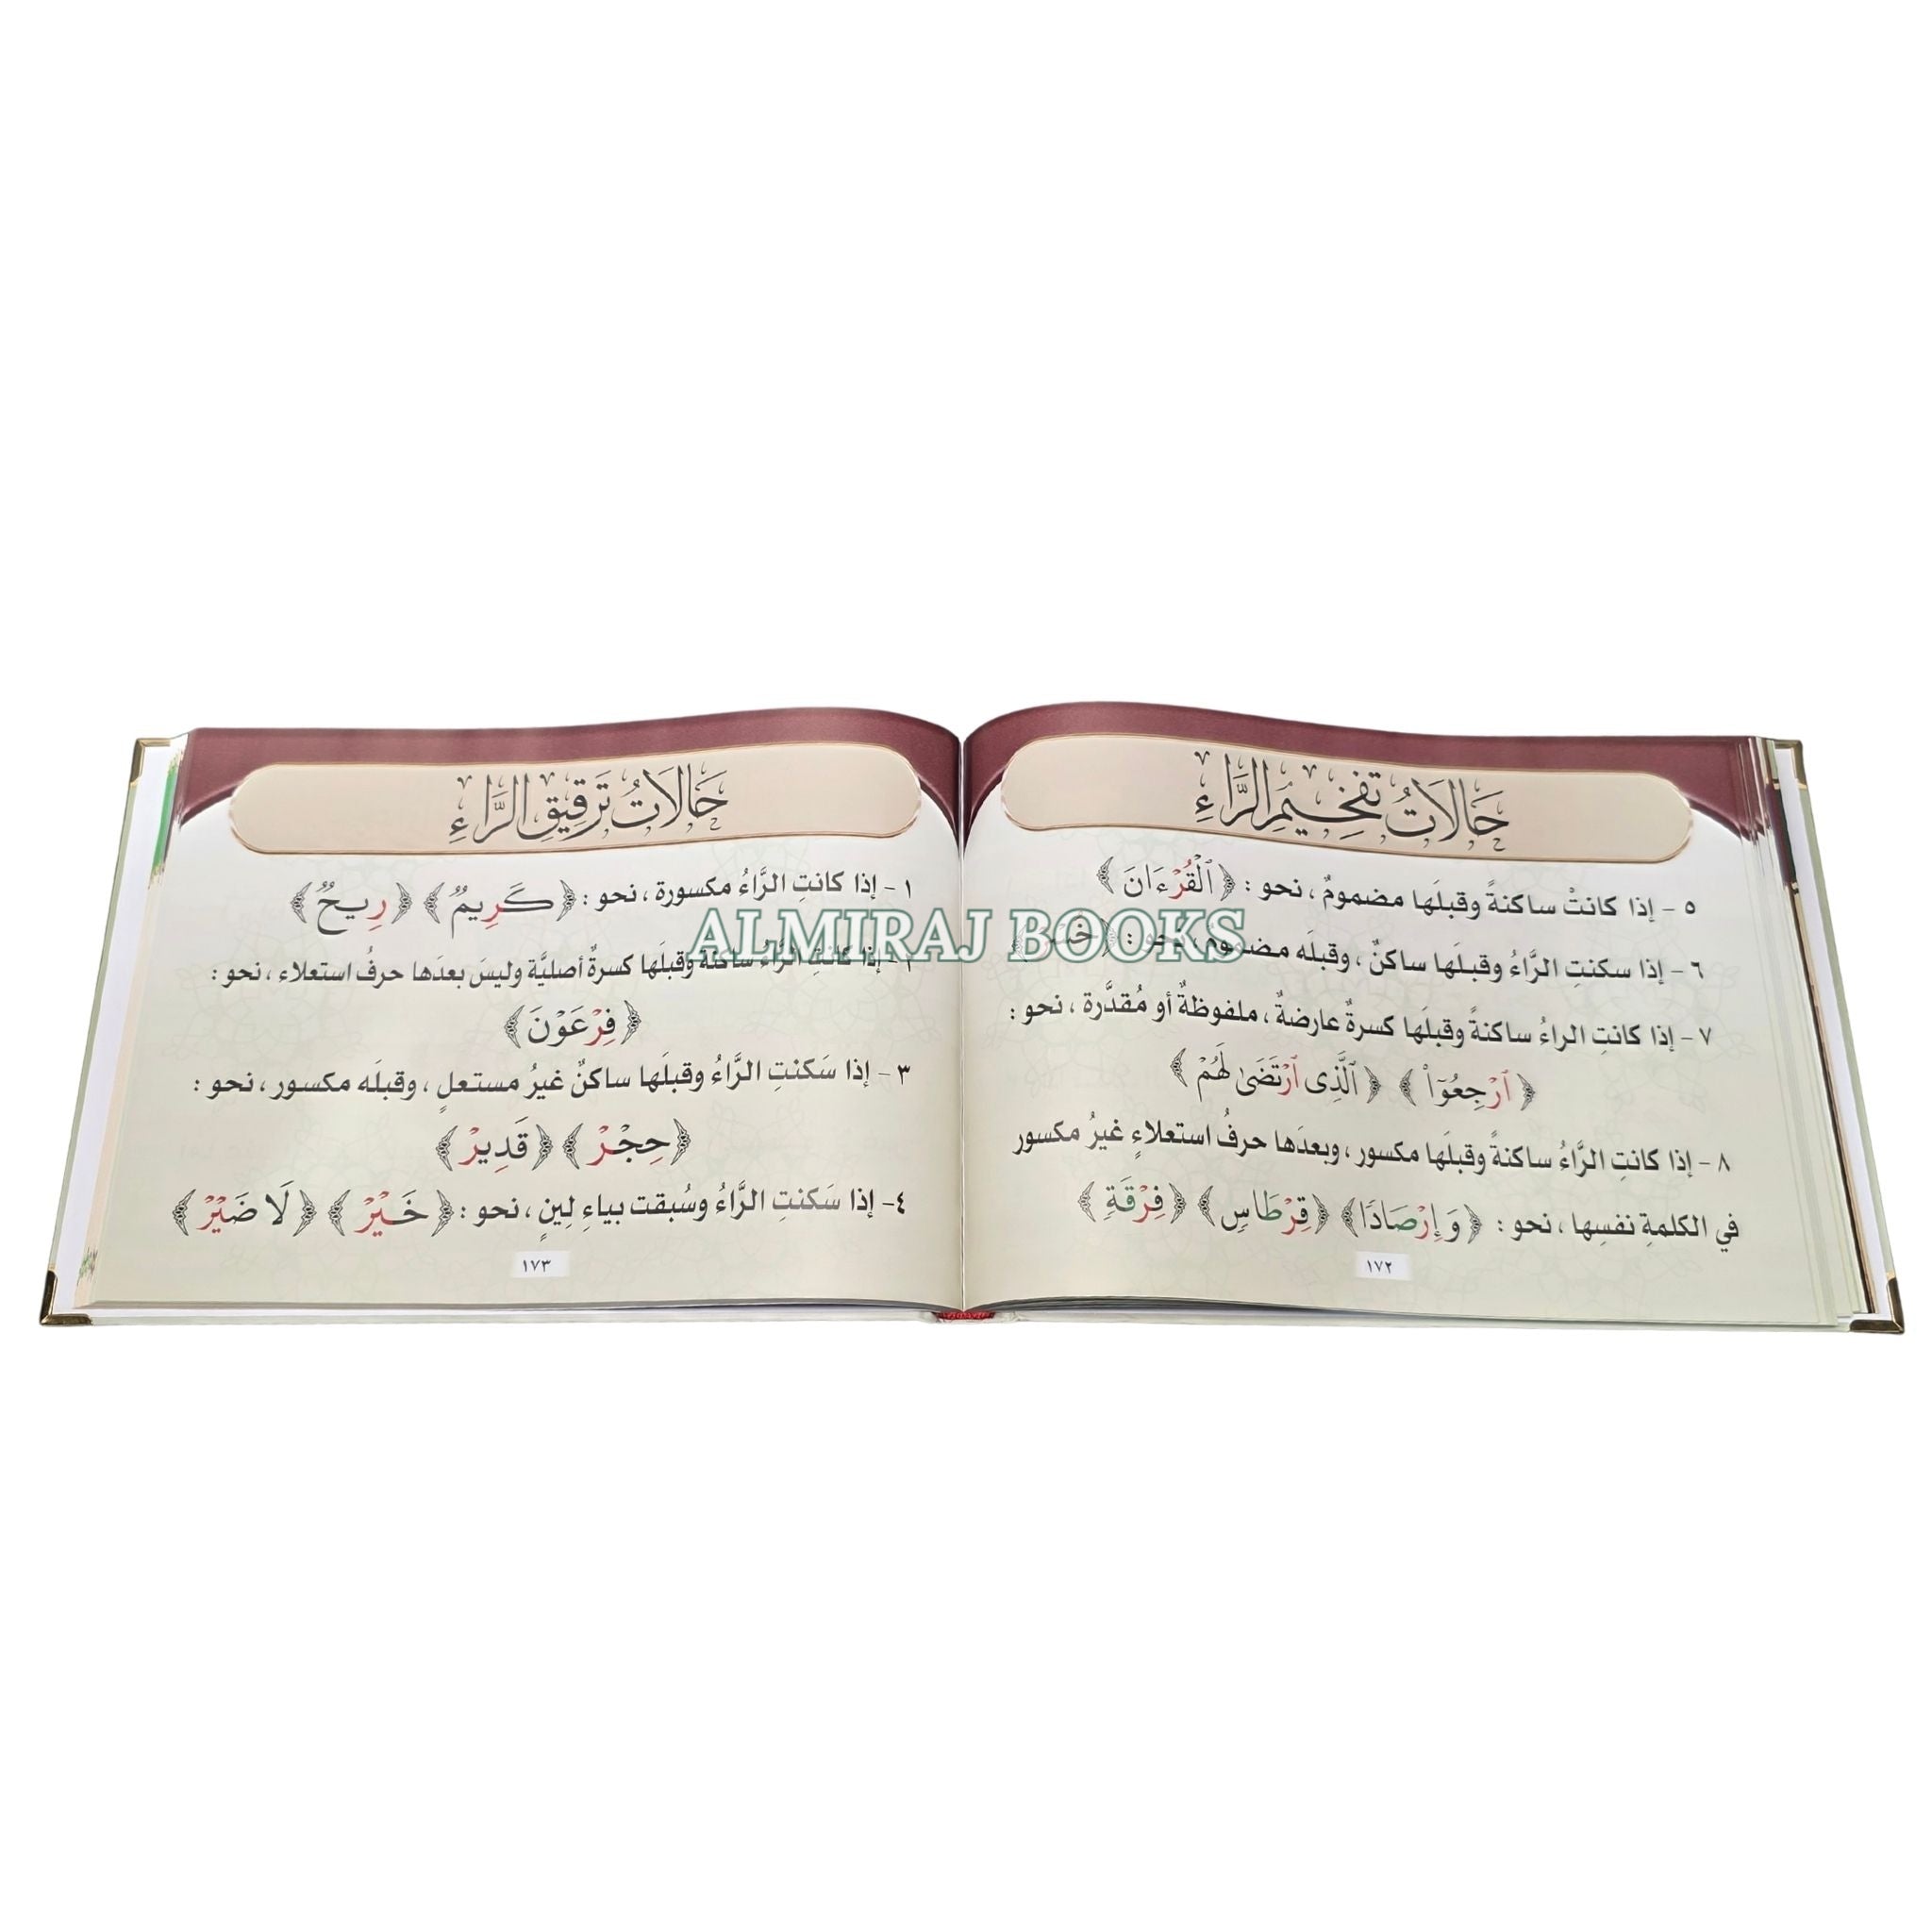 حَالَاتُ تَفْخِيمِ الرَّاءِ
٥ - إذا كانتْ ساكنةً وقبلَها مضمومٌ ، نحو : ﴿ ٱلْقُرْءَانَ ﴾
٦ - إذا سكنتِ الرَّاءُ وقبلَها ساكنٌ ، وقبلَه
٧ - إذا كانتِ الراءُ ساكنةً وقبلَها كسرةٌ عارضةٌ ، ملفوظةٌ أو مُقدَّرة ، نحو :
﴿ ٱرْجِعُوٓا۟ ﴾ ﴿ ٱلَّذِى ٱرْتَضَىٰ لَهُمْ ﴾
٨ - إذا كانتِ الرَّاءُ ساكنةً وقبلَها مكسور ، وبعدَها حرفُ استعلاءٍ غيرُ مكسور
في الكلمةِ نفسِها ، نحو : ﴿ وَإِرْصَادًا ﴾ ﴿ قِرْطَاسٍ ﴾ ﴿ فِرْقَةٍ ﴾
١٧٢
حَالَاتُ تَرْقِيقِ الرَّاءِ
١ - إذا كانتِ الرَّاءُ مكسورة ، نحو : ﴿ كَرِيمٌ ﴾ ﴿ رِيحٌ ﴾
إذا كانتِ الرَّاءُ ساكنةً وقبلَها كسرةٌ أصليَّة وليسَ بعدَها حرفُ استعلاء ، نحو :
﴿ فِرْعَوْنَ ﴾
٣ - إذا سَكنتِ الرَّاءُ وقبلَها ساكنٌ غيرُ مستعلٍ ، وقبلَه مكسور ، نحو :
﴿ حِجْرْ ﴾ ﴿ قَدِيرْ ﴾
٤- إذا سَكنتِ الرَّاءُ وسُبقت بياءِ لِينٍ ، نحو : ﴿ خَيْرْ ﴾ ﴿ لَا ضَيْرْ ﴾
١٧٣
ALMIRAJ BOOKS